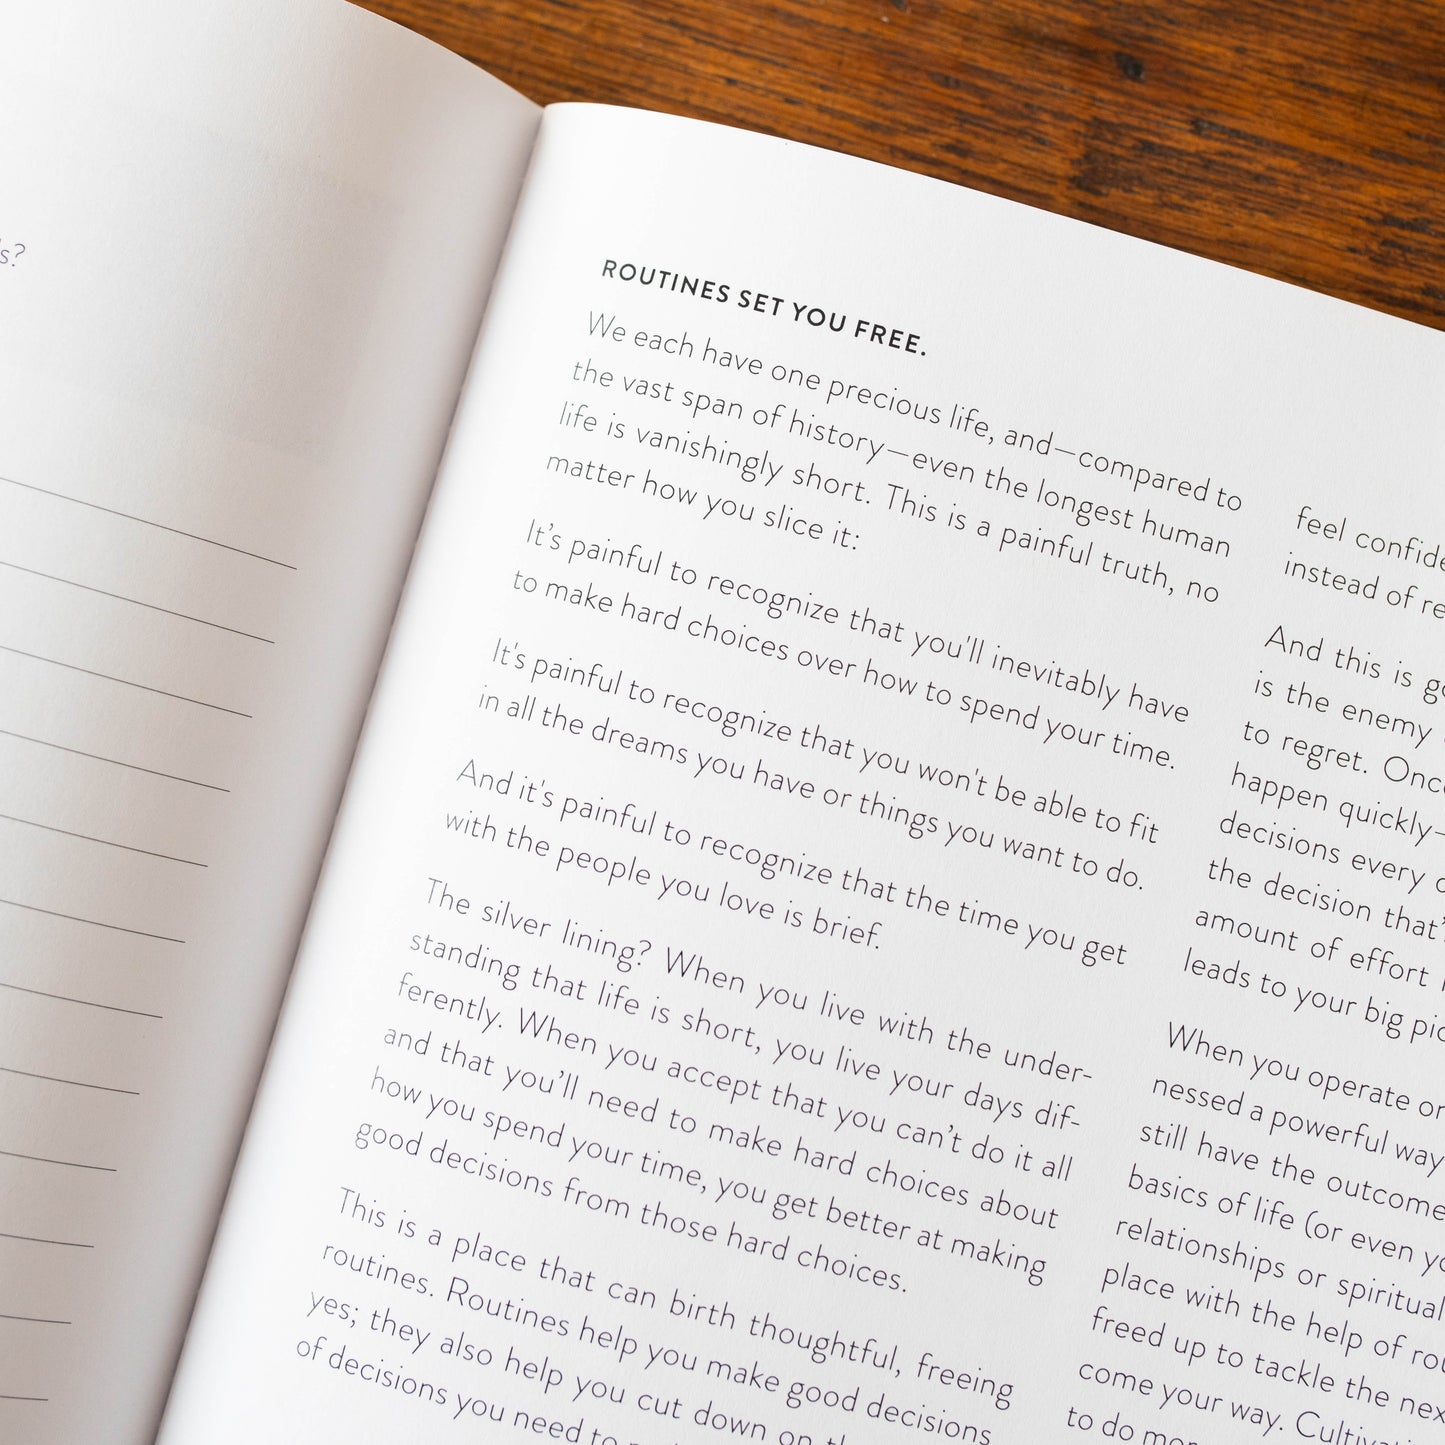 s?
ROUTINES SET YOU FREE.
We each have one precious life, and—compared to
the vast span of history—even the longest human
life is vanishingly short. This is a painful truth, no
matter how you slice it:
It’s painful to recognize that you'll inevitably have
to make hard choices over how to spend your time.
It's painful to recognize that you won't be able to fit
in all the dreams you have or things you want to do.
And it's painful to recognize that the time you get
with the people you love is brief.
The silver lining? When you live with the under-
standing that life is short, you live your days dif-
ferently. When you accept that you can’t do it all
and that you’ll need to make hard choices about
how you spend your time, you get better at making
good decisions from those hard choices.
This is a place that can birth thoughtful, freeing
routines. Routines help you make good decisions
yes; they also help you cut down on
of decisions you need to
feel
instead of
And this is
is the enemy
to regret.
happen quickly—
decisions every
the decision that’
amount of effort
leads to your big
When you operate
nessed a powerful way
still have the
basics of life (or even
relationships or spiritual
place with the help of
freed up to tackle the
come your way.
to do